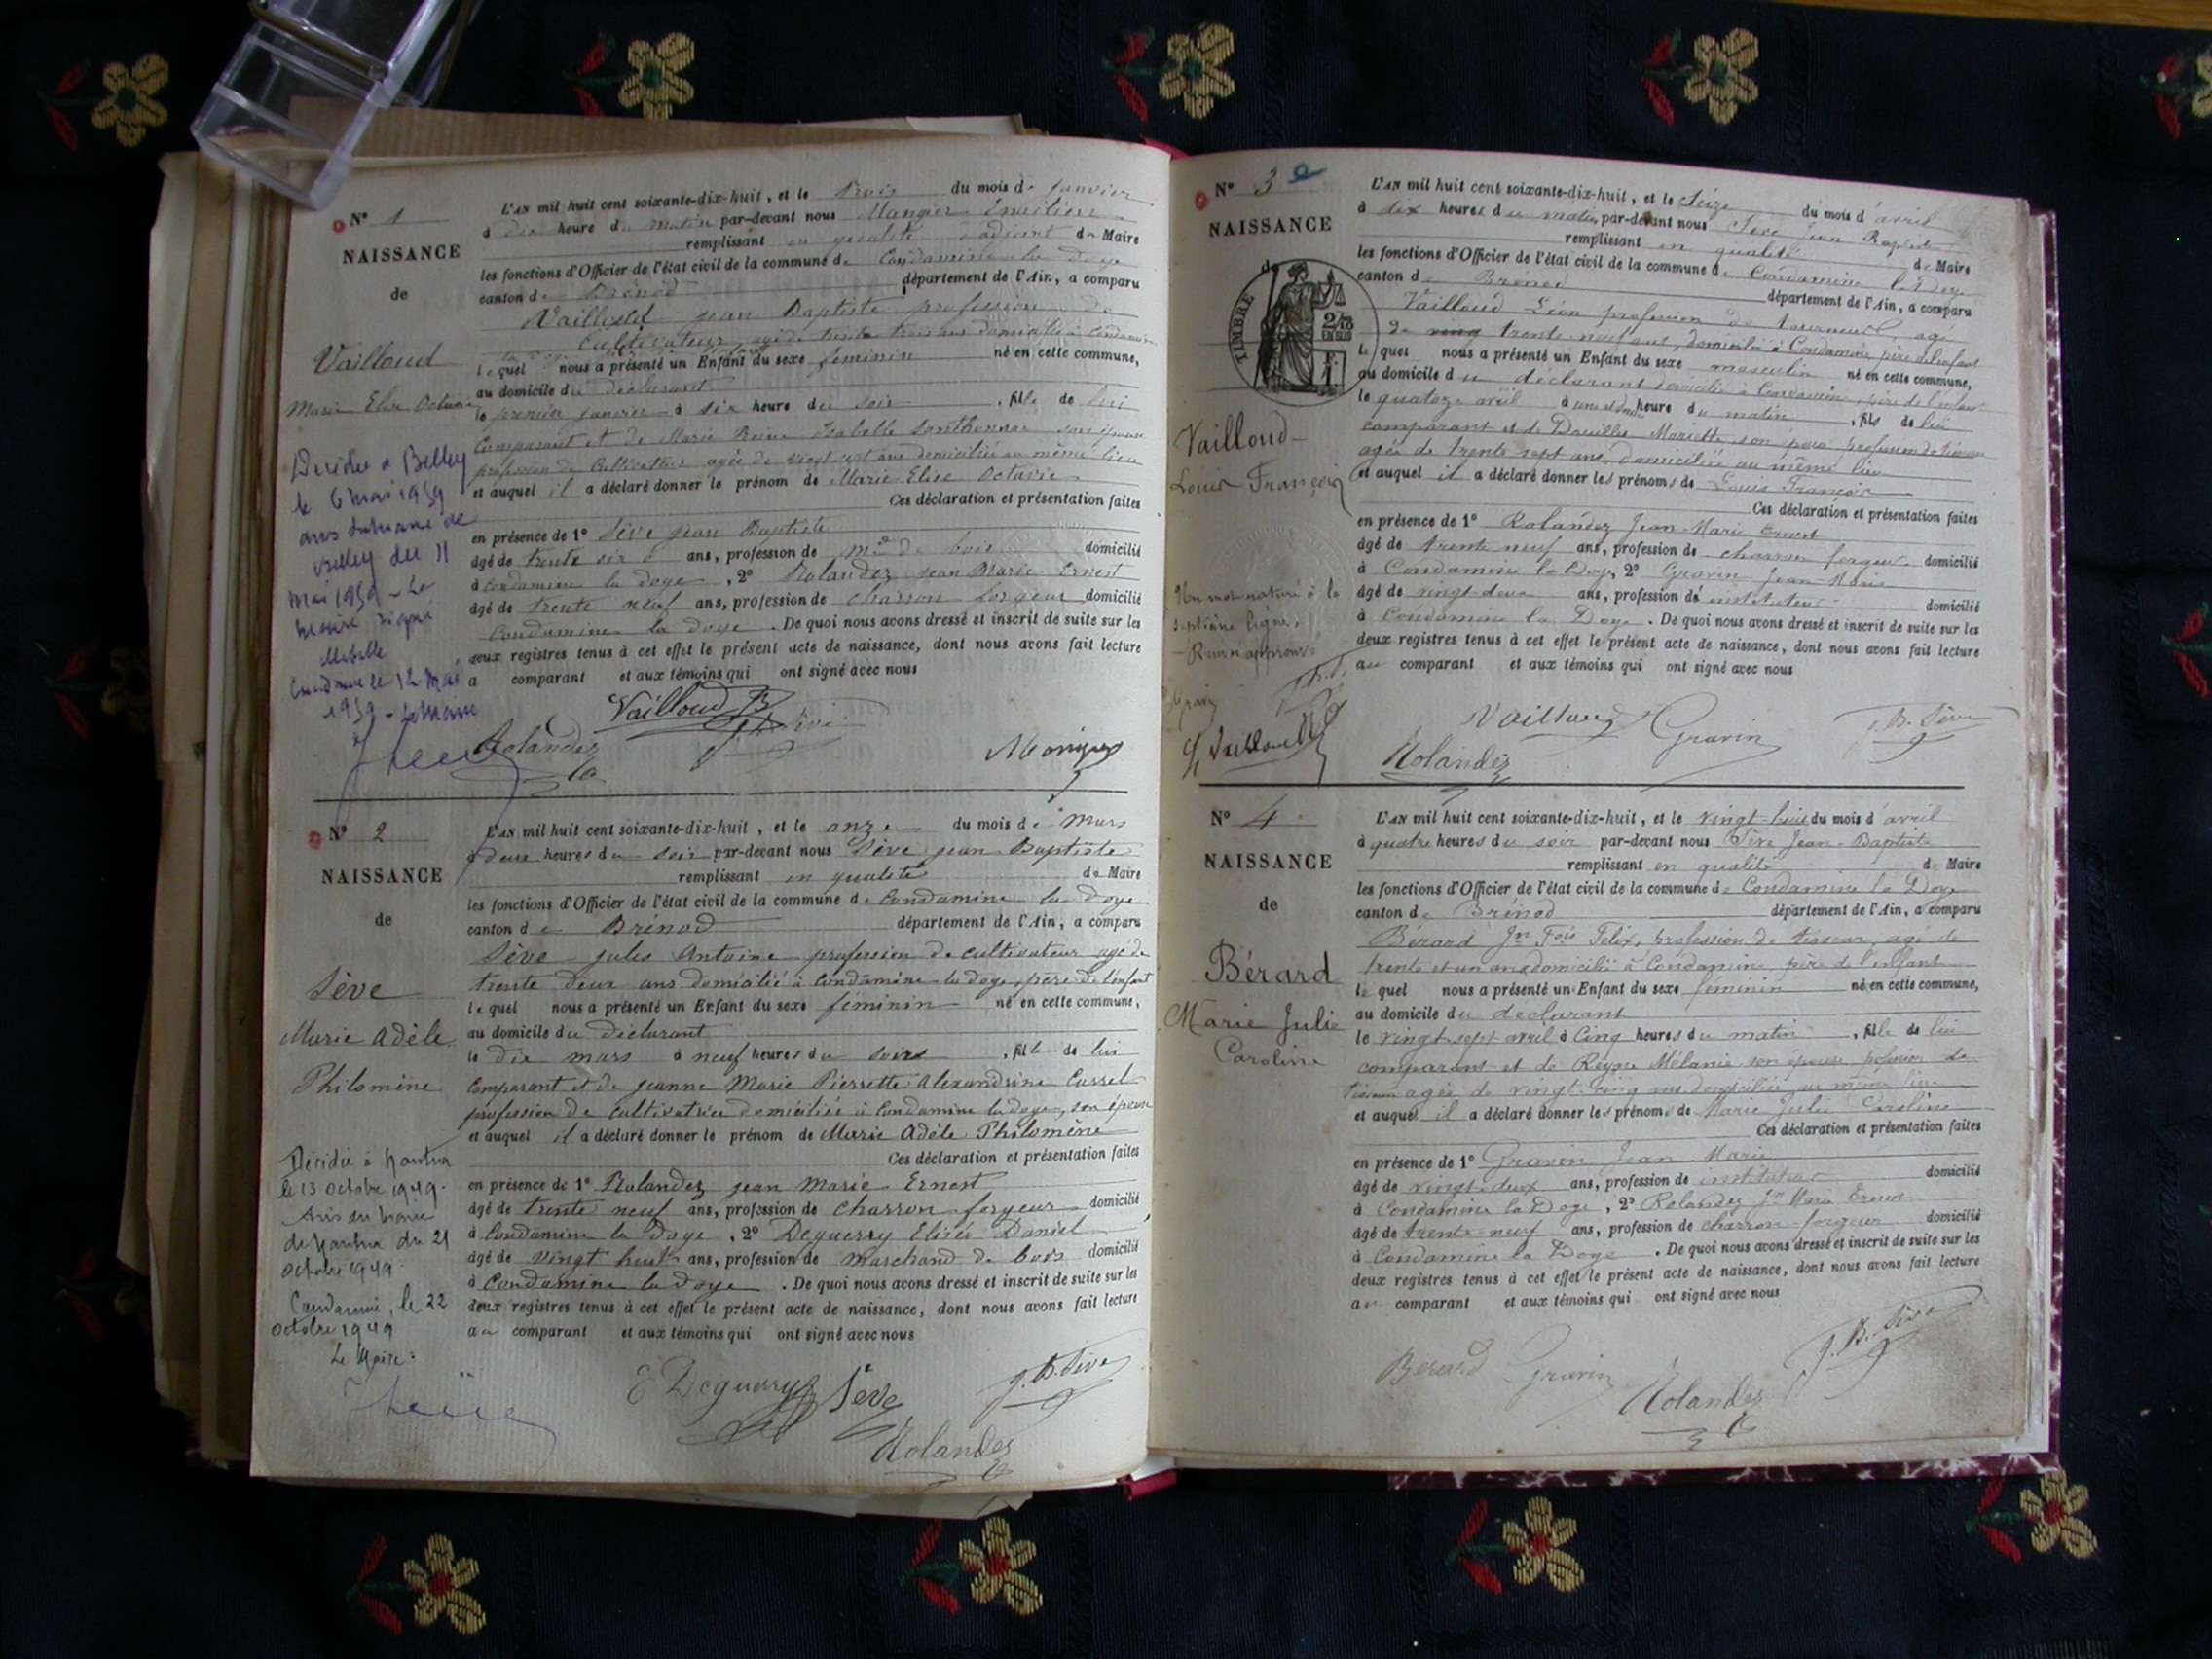 N° 1
NAISSANCE
de
Vailloud
Marie Elise Octavie
L'AN mil huit cent soixante-dix-huit, et le Trois du mois de janvier
à dix heure du matin par-devant nous Mangier Emilien
remplissant en qualité d'adjoint de Maire
les fonctions d'Officier de l'état civil de la commune de Condamine la doye
canton de Brénod département de l'Ain, a comparu
Vailloud jean Baptiste profession de
Cultivateur, agé de trente trois ans domicilié à Condamine
lequel nous a présenté un Enfant du sexe féminin né en cette commune,
au domicile du déclarant
le premier janvier à six heure du soir, fille de lui
Comparant et de Marie Reine Isabelle Santhonnax son épouse
profession de Cultivatrice agée de vingt sept ans domiciliée au même lieu
et auquel il a déclaré donner le prénom de Marie Elise Octavie
Ces déclaration et présentation faites
en présence de 1° Sève jean Baptiste
âgé de trente six ans, profession de md de bois domicilié
à Condamine la doye, 2° Rolandez jean Marie Ernest
âgé de trente neuf ans, profession de charron forgeur domicilié
Condamine la doye. De quoi nous avons dressé et inscrit de suite sur les
deux registres tenus à cet effet le présent acte de naissance, dont nous avons fait lecture
a comparant et aux témoins qui ont signé avec nous
Décédée à Belley
le 6 mai 1959
avis du maire de
Belley du 11
mai 1959 - Le
maire signé
Condamine le 12 Mai
1959 - Le Maire
Vailloud B
J. B. Sève
Rolandez
Mangier
N° 2
NAISSANCE
de
Sève
Marie Adèle
Philomène
L'AN mil huit cent soixante-dix-huit, et le onze du mois de Mars
à deux heures du soir par-devant nous Sève jean Baptiste
remplissant en qualité de Maire
les fonctions d'Officier de l'état civil de la commune de Condamine la doye
canton de Brénod département de l'Ain, a comparu
Sève jules Antoine profession de cultivateur agé de
trente deux ans domicilié à Condamine la doye, père de l'enfant
lequel nous a présenté un Enfant du sexe féminin né en cette commune,
au domicile du déclarant
le dix mars à neuf heures du soir, fille de lui
Comparant et de jeanne Marie Pierrette Alexandrine Carrel
profession de cultivatrice domiciliée à Condamine la doye, son épouse
et auquel il a déclaré donner le prénom de Marie Adèle Philomène
Ces déclaration et présentation faites
en présence de 1° Rolandez jean Marie Ernest
âgé de trente neuf ans, profession de charron forgeur domicilié
à Condamine la doye, 2° Deguerry Elisée Daniel
âgé de vingt huit ans, profession de marchand de bois domicilié
à Condamine la doye. De quoi nous avons dressé et inscrit de suite sur les
deux registres tenus à cet effet le présent acte de naissance, dont nous avons fait lecture
au comparant et aux témoins qui ont signé avec nous
Décédée à Nantua
le 13 octobre 1949.
Avis du maire
de Nantua du 21
octobre 1949.
Condamine, le 22
octobre 1949
Le Maire :
E Deguerry
Sève
J. B. Sève
Rolandez
N° 3
NAISSANCE
TIMBRE
Vailloud
Louis François
L'AN mil huit cent soixante-dix-huit, et le Seize du mois d'avril
à dix heures du matin par-devant nous Sève Jean Baptiste
remplissant en qualité de Maire
les fonctions d'Officier de l'état civil de la commune de Condamine la Doye
canton de Brénod département de l'Ain, a comparu
Vailloud Léon profession de tourneur, agé
de vingt trente neuf ans, domicilié à Condamine père de l'enfant
lequel nous a présenté un Enfant du sexe masculin né en cette commune,
au domicile du déclarant domicilié à Condamine, père de l'enfant
le quatorze avril à une heure du matin, fils de lui
comparant et de Mariette son épouse profession de
agée de trente sept ans, domiciliée au même lieu
et auquel il a déclaré donner les prénoms de Louis François
Ces déclaration et présentation faites
en présence de 1° Rolandez Jean Marie Ernest
âgé de trente neuf ans, profession de charron forgeur domicilié
à Condamine la Doye, 2° Gravin Jean Marie
âgé de vingt-deux ans, profession de instituteur domicilié
à Condamine la Doye. De quoi nous avons dressé et inscrit de suite sur les
deux registres tenus à cet effet le présent acte de naissance, dont nous avons fait lecture
au comparant et aux témoins qui ont signé avec nous
Un mot raturé à la
septième ligne.
Gravin
Vailloud
Vailloud
Gravin
J. B. Sève
Rolandez
N° 4
NAISSANCE
de
Bérard
Marie Julie
Caroline
L'AN mil huit cent soixante-dix-huit, et le vingt-huit du mois d'avril
à quatre heures du soir par-devant nous Sève Jean-Baptiste
remplissant en qualité de Maire
les fonctions d'Officier de l'état civil de la commune de Condamine la Doye
canton de Brénod département de l'Ain, a comparu
Bérard Jn Fois Félix, profession de tisseur, agé de
trente et un ans domicilié à Condamine père de l'enfant
lequel nous a présenté un Enfant du sexe féminin né en cette commune,
au domicile du déclarant
le vingt-sept avril à Cinq heures du matin, fille de lui
comparant et de Mélanie son épouse profession de
agée de vingt-cinq ans domiciliée au même lieu
et auquel il a déclaré donner les prénoms de Marie Julie Caroline
Ces déclaration et présentation faites
en présence de 1° Gravin Jean-Marie
âgé de vingt-deux ans, profession de instituteur domicilié
à Condamine la Doye, 2° Rolandez Jn Marie Ernest
âgé de trente-neuf ans, profession de charron forgeur domicilié
à Condamine la Doye. De quoi nous avons dressé et inscrit de suite sur les
deux registres tenus à cet effet le présent acte de naissance, dont nous avons fait lecture
au comparant et aux témoins qui ont signé avec nous
Bérard
Gravin
J. B. Sève
Rolandez